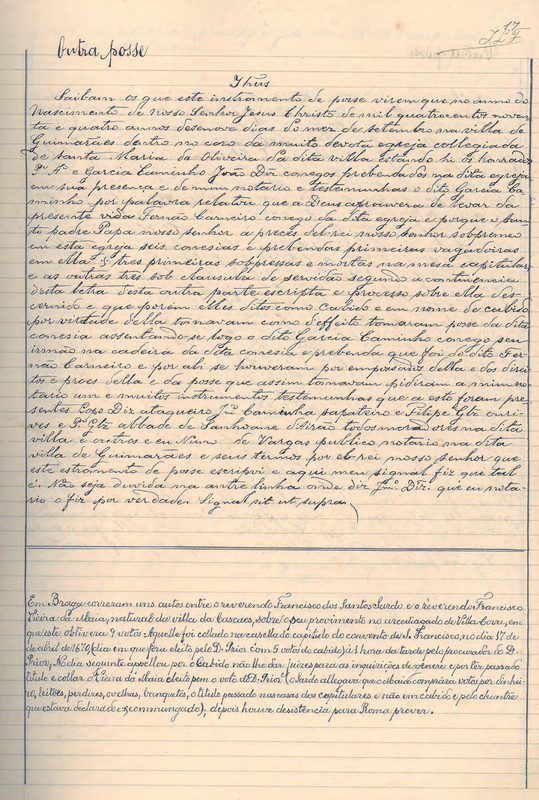 17
Outra posse
Ihus
Saibam os que este instromento de posse virem que no anno do
Nascimento de Nosso Senhor Jesus Christo de mil quatrocentos noven-
ta e quatro annos desenove dias do mez de setembro na villa de
Guimarães dentro no coro da muito devota egreja collegiada
de Santa Maria da Oliveira da dita villa estando hi os honrados
P.º A.º e Garcia Caminho João Diz conegos prebendados na dita egreja
em sua presença e de mim notario e testemunhas o dito Garcia Ca
minho, por palavra relatou que a Deus aprouvera de levar da
presente vida Fernão Carneiro conego da dita egreja e porque o san-
to padre Papa nosso senhor a preces del-rei nosso senhor sopremeo
em esta egreja seis conesias e prebendas primeiras vagadoiras
em ella § tres primeiras sopressas e mortas na mesa capitular
e as outras tres sob clausula de servidão segundo a continencia
desta letra desta outra parte escripta e processo sobre ella des-
cernido e que porém elles ditos como Cabido e em nome de cabido
por virtude della tomavam como d'effeito tomaram posse da dita
conesia assentando-se logo o dito Garcia Caminho conego seu
irmão na cadeira da dita conesia e prebenda que foi do dito Fer-
não Carneiro e por ahi se houveram por empossados della e dos direi-
tos e proes della e da posse que assim tomavam pidiram a mim no-
tario um e muitos instrumentos testemunhas que a esto foram pre-
sentes Lopo Diz ataqueiro J.me Caminha sapateiro e Filipe Glz ouri-
ves e P.º Glz abbade de Sanhoane d'Airão todos moradores na dita
villa e outros e eu Nuno de Vargas publico notario na dita
villa de Guimarães e seus termos por el-rei nosso senhor que
este estromento de posse escripvi e aqui meu signal fiz que tal
é. Não seja duvida na antre linha onde diz J.me Diz. que eu nota-
rio o fiz por verdade. Signal sit ut supra
Em Braga correram uns autos entre o reverendo Francisco dos Santos Sardo e o reverendo Francisco
Vieira da Maia, natural da villa de Cascaes, sobre o seu provimento no arcediagado de Villa Cova, em
que este obtivera 9 votos. Aquelle foi collado na capella do capitulo do convento de S. Francisco, no dia 17 de
de abril de 1670 (dia em que fora eleito pelo D. Prior com 5 votos do cabido) á 1 hora da tarde pelo procurador do D.
Prior; No dia seguinte appellou por o Cabido não lhe dar juizes para as inquirições de genere e por ter passado
titulo e collar o Vieira da Maia eleito sem o voto do D. Prior (o Sardo allegava que o Maia comprara votos por dinhei-
ro, leitões, perdizes, ovelhas, banquetes, o titulo passado nas casas dos capitulares e não em cabido e pelo chantre
que estava declarado excommungado), depois houve desistencia para Roma prover.